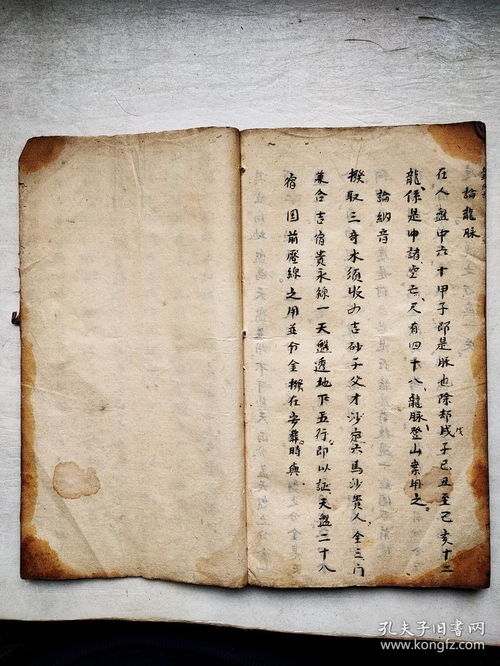 論龍脉
在人盤中六十甲子即是脉也除却戊子己丑至己亥十二
龍係是中諸空亡尺有四十八龍脉登山崇用之
論納音
撥取三奇木須收四吉砂子父才沙定六馬沙貴人全三门
兼合吉宿貴永線一天盤透地下五行即以証天盤二十八
宿国前壓線之用並分金撥在安葬時與
孔夫子旧书网
www.kongfz.com